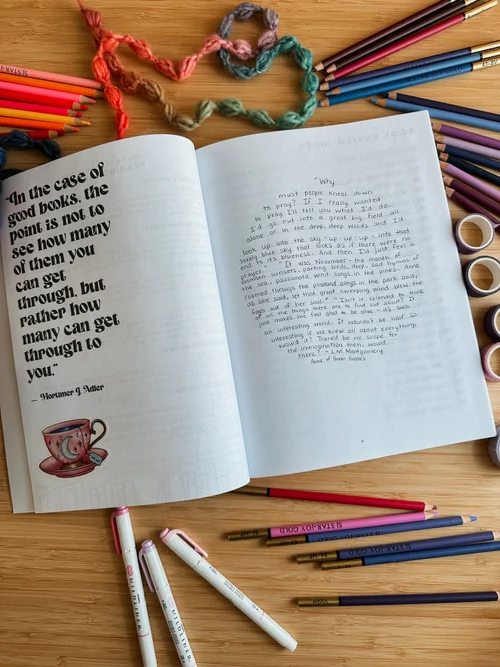 "In the case of
good books, the
point is not to
see how many
of them you
can get
through, but
rather how
many can get
through to
you."
— Mortimer J. Adler
"Why
must people kneel down
to pray? If I really wanted
to pray I'd tell you what I'd do.
I'd go out into a great big field all
alone or in the deep, deep woods and I'd
look up into the sky-up-up-up- into that
lovely blue sky that looks as if there were no
end to its blueness. And then I'd just feel a
prayer." "It was November-the month of
crimson sunsets, parting birds, deep, sad hymns of
the sea, passionate wind-songs in the pines. Anne
roamed through the pineland alleys in the park and,
as she said, let that great sweeping wind blow the
fogs out of her soul." "Isn't it splendid to think
of all the things there are to find out about? It
just makes me feel glad to be alive - it's such
an interesting world. It wouldn't be half so
interesting if we knew all about everything,
would it? There'd be no scope for
the imagination then, would
there?" - L.M. Montgomery
Anne of Green Gables
STARJOY GOLD
STARJOY GOLD
STARJOY GOLD
MILDLINER
MILDLINER
MILDLINER